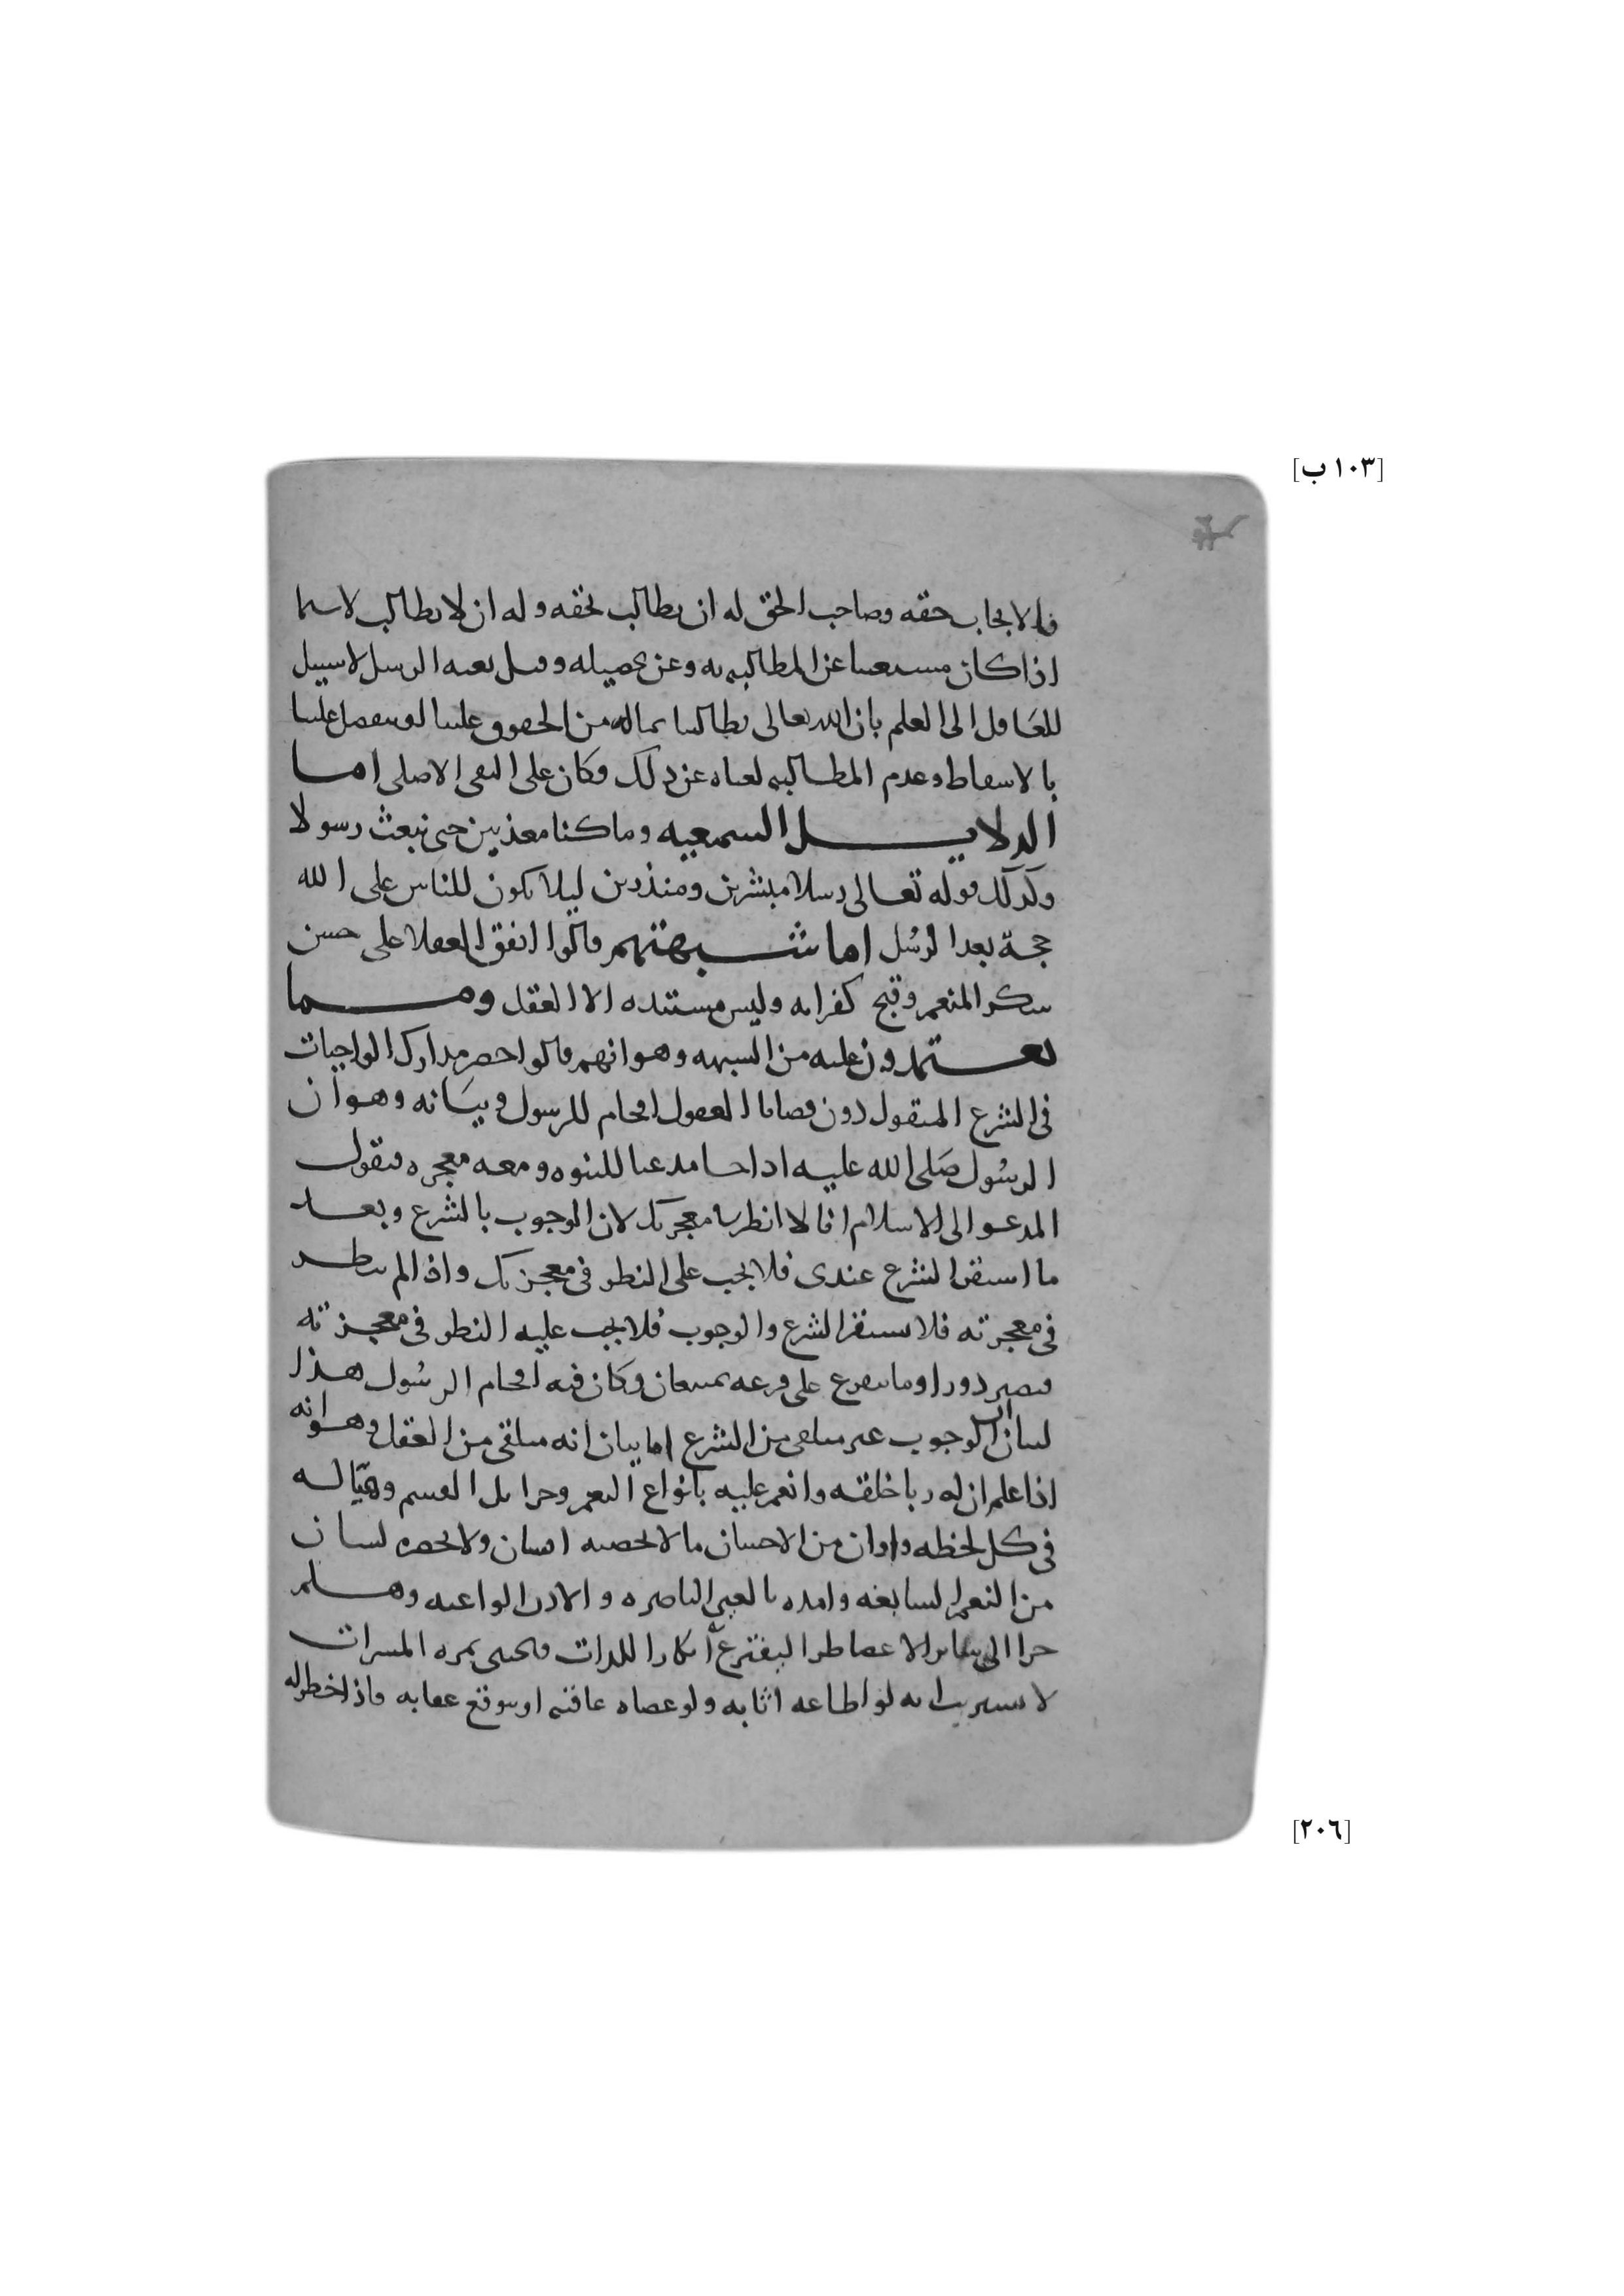 [١٠٣ ب]
فالايجاب حقه وصاحب الحق له ان يطالب بحقه وله ان لا يطالب لاسيما
اذا كان مستغنيا عن المطالبه به وعن تحصيله وقبل بعثه الرسل لا سبيل
للعاقل الى العلم بان الله تعالى يطالبنا بماله من الحقوق علينا او يتفضل علينا
بالاسقاط وعدم المطالبه لغناه عن ذلك وكان على النفي الاصلي اما
الدلايل السمعيه وما كنا معذبين حتى نبعث رسولا
وكذلك قوله تعالى رسلا مبشرين ومنذرين ليلا يكون للناس على الله
حجة بعد الرسل اما شبهتهم قالوا اتفق العقلا على حسن
شكر المنعم وقبح كفرانه وليس مستنده الا العقل ومما
يعتمدون عليه من الشبهه وهو انهم قالوا حصر مدارك الواجبات
في الشرع المنقول دون قضايا العقول افحام للرسول وبيانه وهو ان
الرسول صلى الله عليه اذا جا مدعيا للنبوه ومعه معجزه فيقول
المدعو الى الاسلام انا لا انظر في معجزتك لان الوجوب بالشرع وبعد
ما استقر الشرع عندي فلا يجب على النظر في معجزتك واذا لم ينظر
في معجزته فلا يستقر الشرع والوجوب فلا يجب عليه النظر في معجزته
فيصير دورا وما يتفرع على فرعه يمتنعان وكان فيه افحام الرسول هذا
لبيان ان الوجوب غير متلقى من الشرع اما بيان انه متلقى من العقل وهو انه
اذا علم ان له ربا خلقه وانعم عليه بانواع النعم وجزايل القسم وهيا له
في كل لحظه واوان من الاحسان ما لا يحصيه انسان ولا يحصره لسان
من النعم السابغه وامده بالعين الناصره والاذن الواعيه وهلم
جرا الى ساير الاعضا طرا ليفترع ابكار اللذات ويجتنى ثمره المسرات
لا يستريب انه لو اطاعه اثابه ولو عصاه عاقبه او يتوقع عقابه فاذا خطر له
[٢٠٦]